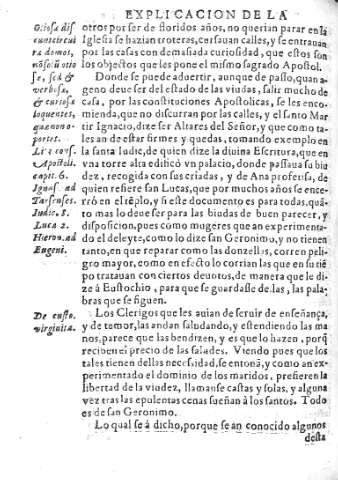 EXPLICACION DE LA
otros por ser de floridos años, no querian parar en la
Iglesia se hazian troteras, cursauan calles, y se entrauan
por las casas con demasiada curiosidad, que estos son
los objectos que les pone el mismo sagrado Apostol.
Donde se puede aduertir, aunque de passo, quan a-
geno deue ser del estado de las viudas, salir mucho de
casa, por las constituciones Apostolicas, se les enco-
mienda, que no discurran por las calles, y el santo Mar
tir Ignacio, dize ser Altares del Señor, y que como ta-
les an de estar firmes y quedas, tomando exemplo en
la santa Iudic, de quien dize la diuina Escritura, que en
vna torre alta edificò vn palacio, donde passaua su biu
dez, recogida con sus criadas, y de Ana profetisa, de
quien refiere san Lucas, que por muchos años se ence-
rrò en el tẽplo, y si este documento es para todas, quã-
to mas lo deue ser para las biudas de buen parecer, y
disposicion, pues como mugeres que an experimenta-
do el deleyte, como lo dize san Geronimo, y no tienen
tanto, en que reparar como las donzellas, corren peli-
gro mayor, como en efecto lo corrian las que en su tiẽ
po tratauan con ciertos deuotos, de manera que le di-
ze à Eustochio, para que se guardasse dellas, las pala-
bras que se siguen.
Los Clerigos que les auian de seruir de enseñança,
y de temor, las andan saludando, y estendiendo las ma
nos, parece que las bendizen, y es que lo hazen, porq̃
reciben el precio de las saludes. Viendo pues que los
tales tienen dellas necessidad, se entonã, y como an ex-
perimentado el dominio de los maridos, prefieren la
libertad de la viudez, llamanse castas y solas, y alguna
vez tras las epulentas cenas sueñan à los santos. Todo
es de san Geronimo.
Lo qual se à dicho, porque se an conocido algunos
desta
Ociosa dis
cunt circui
ra domos,
nõ solũ otio
sæ, sed &
verbosæ,
& curiosæ
loquentes,
quæ non o-
portet.
Li. 2 cons.
Apostoli.
capit. 6.
Ignat. ad
Tarsenses.
Iudic. 8.
Luca 2.
Hieron. ad
Eugeni.
De custo.
virginita.